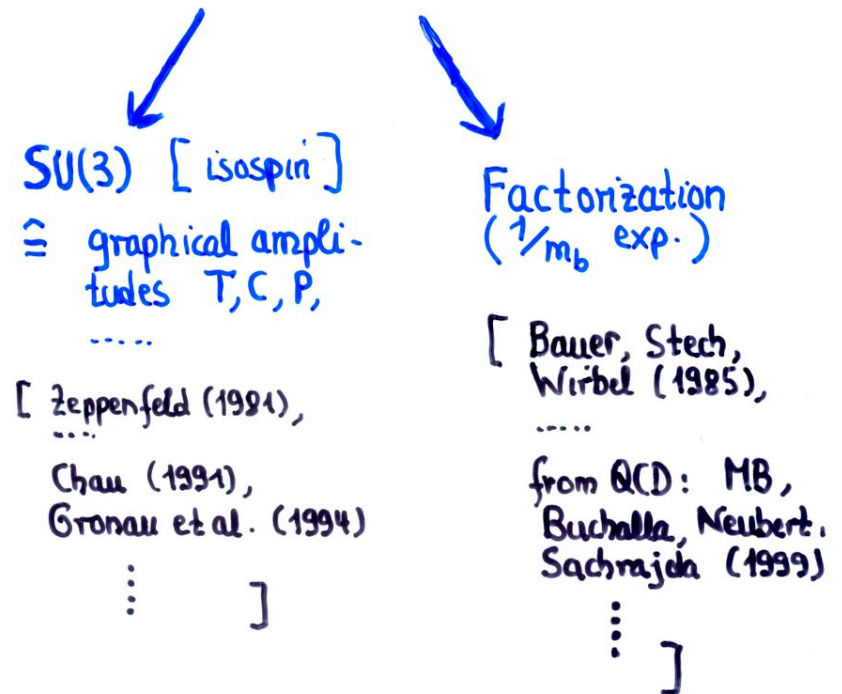 SU(3) [ isospin ]
≙ graphical ampli-
tudes T, C, P,
.....
[ Zeppenfeld (1981),
....
Chau (1991),
Gronau et al. (1994)
⋮ ]
Factorization
( 1/m_b exp. )
[ Bauer, Stech,
Wirbel (1985),
.....
from QCD: MB,
Buchalla, Neubert.
Sachrajda (1999)
⋮
]